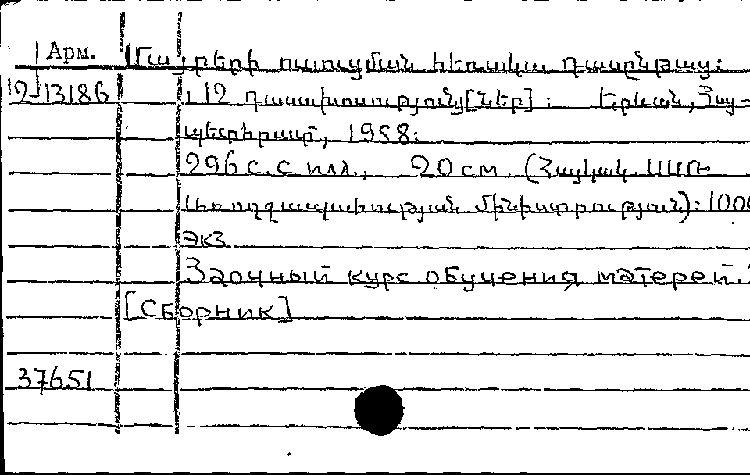 Арм.
Մայրերի ուսուցման հեռակա դասընթաց:
12-13186
12 դասախոսություն[ներ]: Երևան, Հայ-
պետհրատ, 1958:
296 с. с илл., 20 см (Հայկական ՍՍՌ
առողջապահության մինիստրություն): 1000
экз
Заочный курс обучения матерей.
[Сборник]
37651